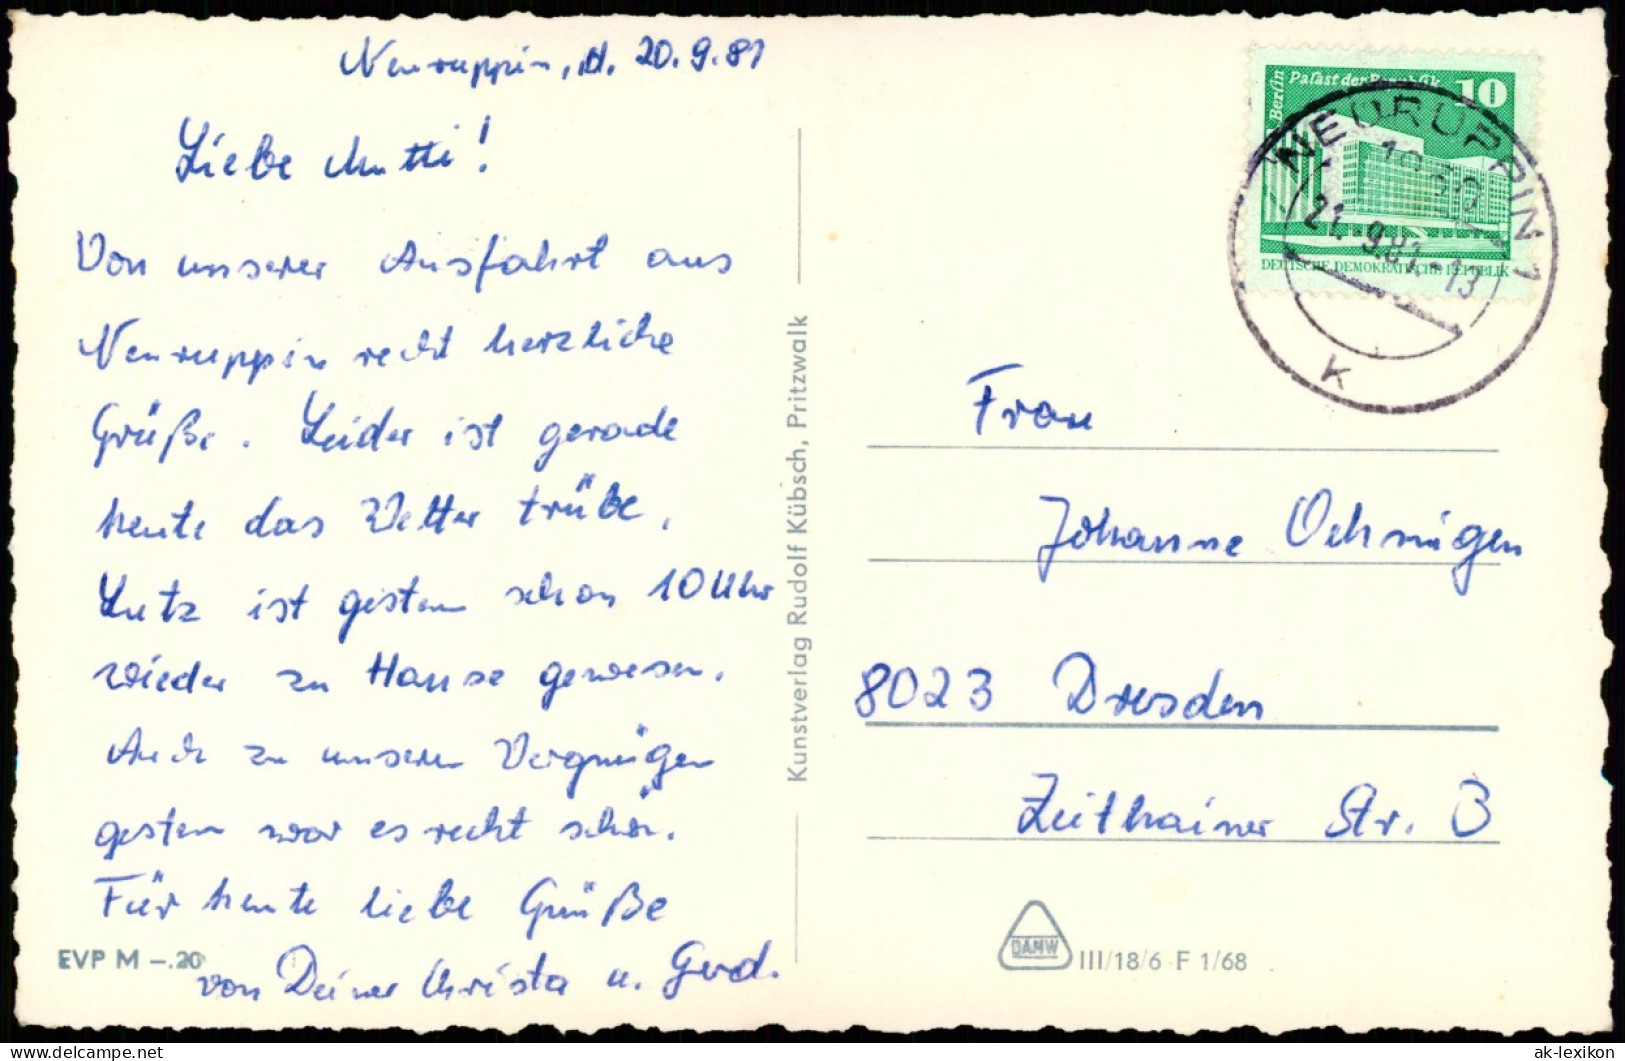 Neuruppin, d. 20.9.81
Liebe Mutti!
Von unserer Ausfahrt aus
Neuruppin recht herzliche
Grüße. Leider ist gerade
heute das Wetter trübe.
Lutz ist gestern schon 10 Uhr
wieder zu Hause gewesen.
Auch zu unseren Vergnügen
gestern war es recht schön.
Für heute liebe Grüße
von Deiner Christa u. Gerd.
EVP M –.20
Kunstverlag Rudolf Kübsch, Pritzwalk
Berlin
Palast der Republik
10
DEUTSCHE DEMOKRATISCHE REPUBLIK
NEURUPPIN 1
21.9.81.-13
k
Frau
Johanne Oehmigen
8023 Dresden
Zeithainer Str. 3
DAMW
III/18/6 F 1/68
ak-lexikon